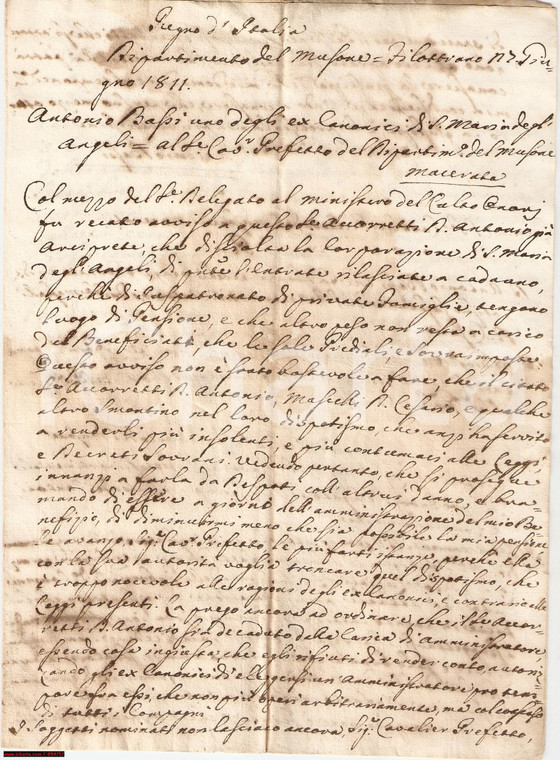 Regno d'Italia
Dipartimento del Musone = Filottrano 27. Giu=
gno 1811.
Antonio Bassi uno degli ex Canonici di S. Maria degl'
Angeli = al Sr. Cavr. Prefetto del Dipartimo. del Musone
Macerata
Col mezzo del Sr. Delegato al ministero del Culto
fu recato avviso a questo Sr. Accorretti D. Antonio già
Arciprete, che disciolta la Corporazione di S. Maria
degl'Angeli, di pnte l'Entrate rilasciate a cadauno,
perchè di Juspatronato di private famiglie, tengono
luogo di Pensione, e che altro peso non resta a carico
de' Beneficiati, che le sole Prediali e Sovraimposte.
Questo avviso non è stato bastevole a fare, che il citato
Sr. Accorretti D. Antonio, D. Cesario, e qualche
altro smontino nel loro dispotismo, che anzi ha servito
a renderli più insolenti, e più contumaci alle Leggi,
e Decreti Sovrani. Vedendo pertanto, che si prosegue
innanzi a farla da Despoti coll'altrui danno, e bra=
mando di essere a giorno dell'amministrazione del mio Be=
nefizio, di diminuirmi meno che sia possibile la mia pensione
Le avanzo Sigr. Cavr. Prefetto, le più forti istanze, perchè Ella
con la sua autorità voglia troncare quel dispotismo, che
è troppo nocevole alle ragioni degli ex Canonici, e contrario alle
Leggi presenti. La prego ancora ad ordinare, che il Sr. Accor=
retti D. Antonio sia decaduto dalla carica di Amministratore,
essendo cosa ingiusta che egli rifiuti di render conto, autoriz=
zando gli ex Canonici di eleggersi un Amministratore pro tem=
pore fra essi, che non più operi arbitrariamente, ma col consenso
di tutti i Compagni
I soggetti nominati non lasciano ancora, Sigr. Cavalier Prefetto,